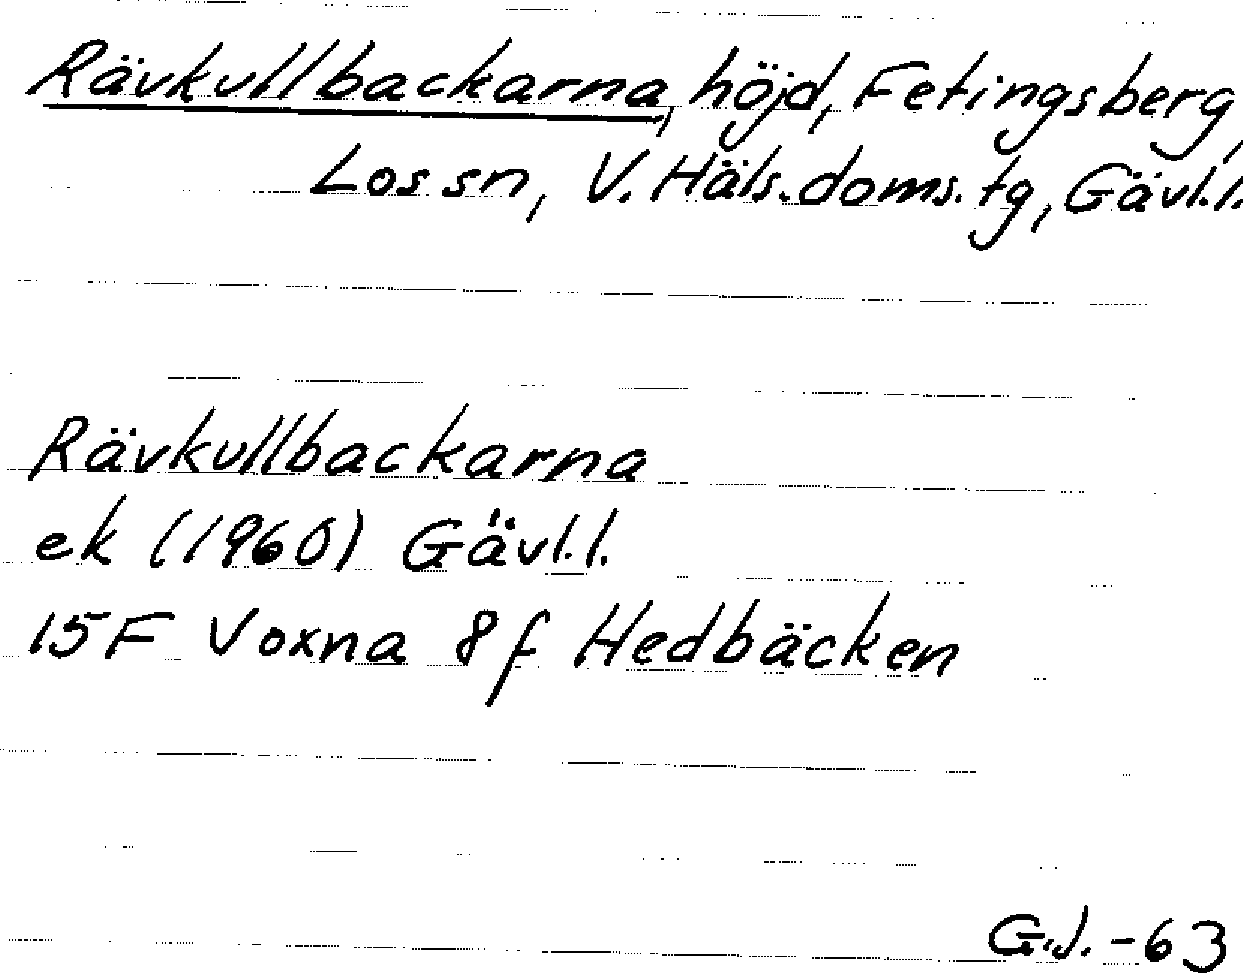 Rävkullbackarna, höjd, Fetingsberg,
Los sn, V. Häls. doms. tg, Gävl. l.
Rävkullbackarna
ek (1960) Gävl. l.
15F Voxna 8f Hedbäcken
G.J. -63